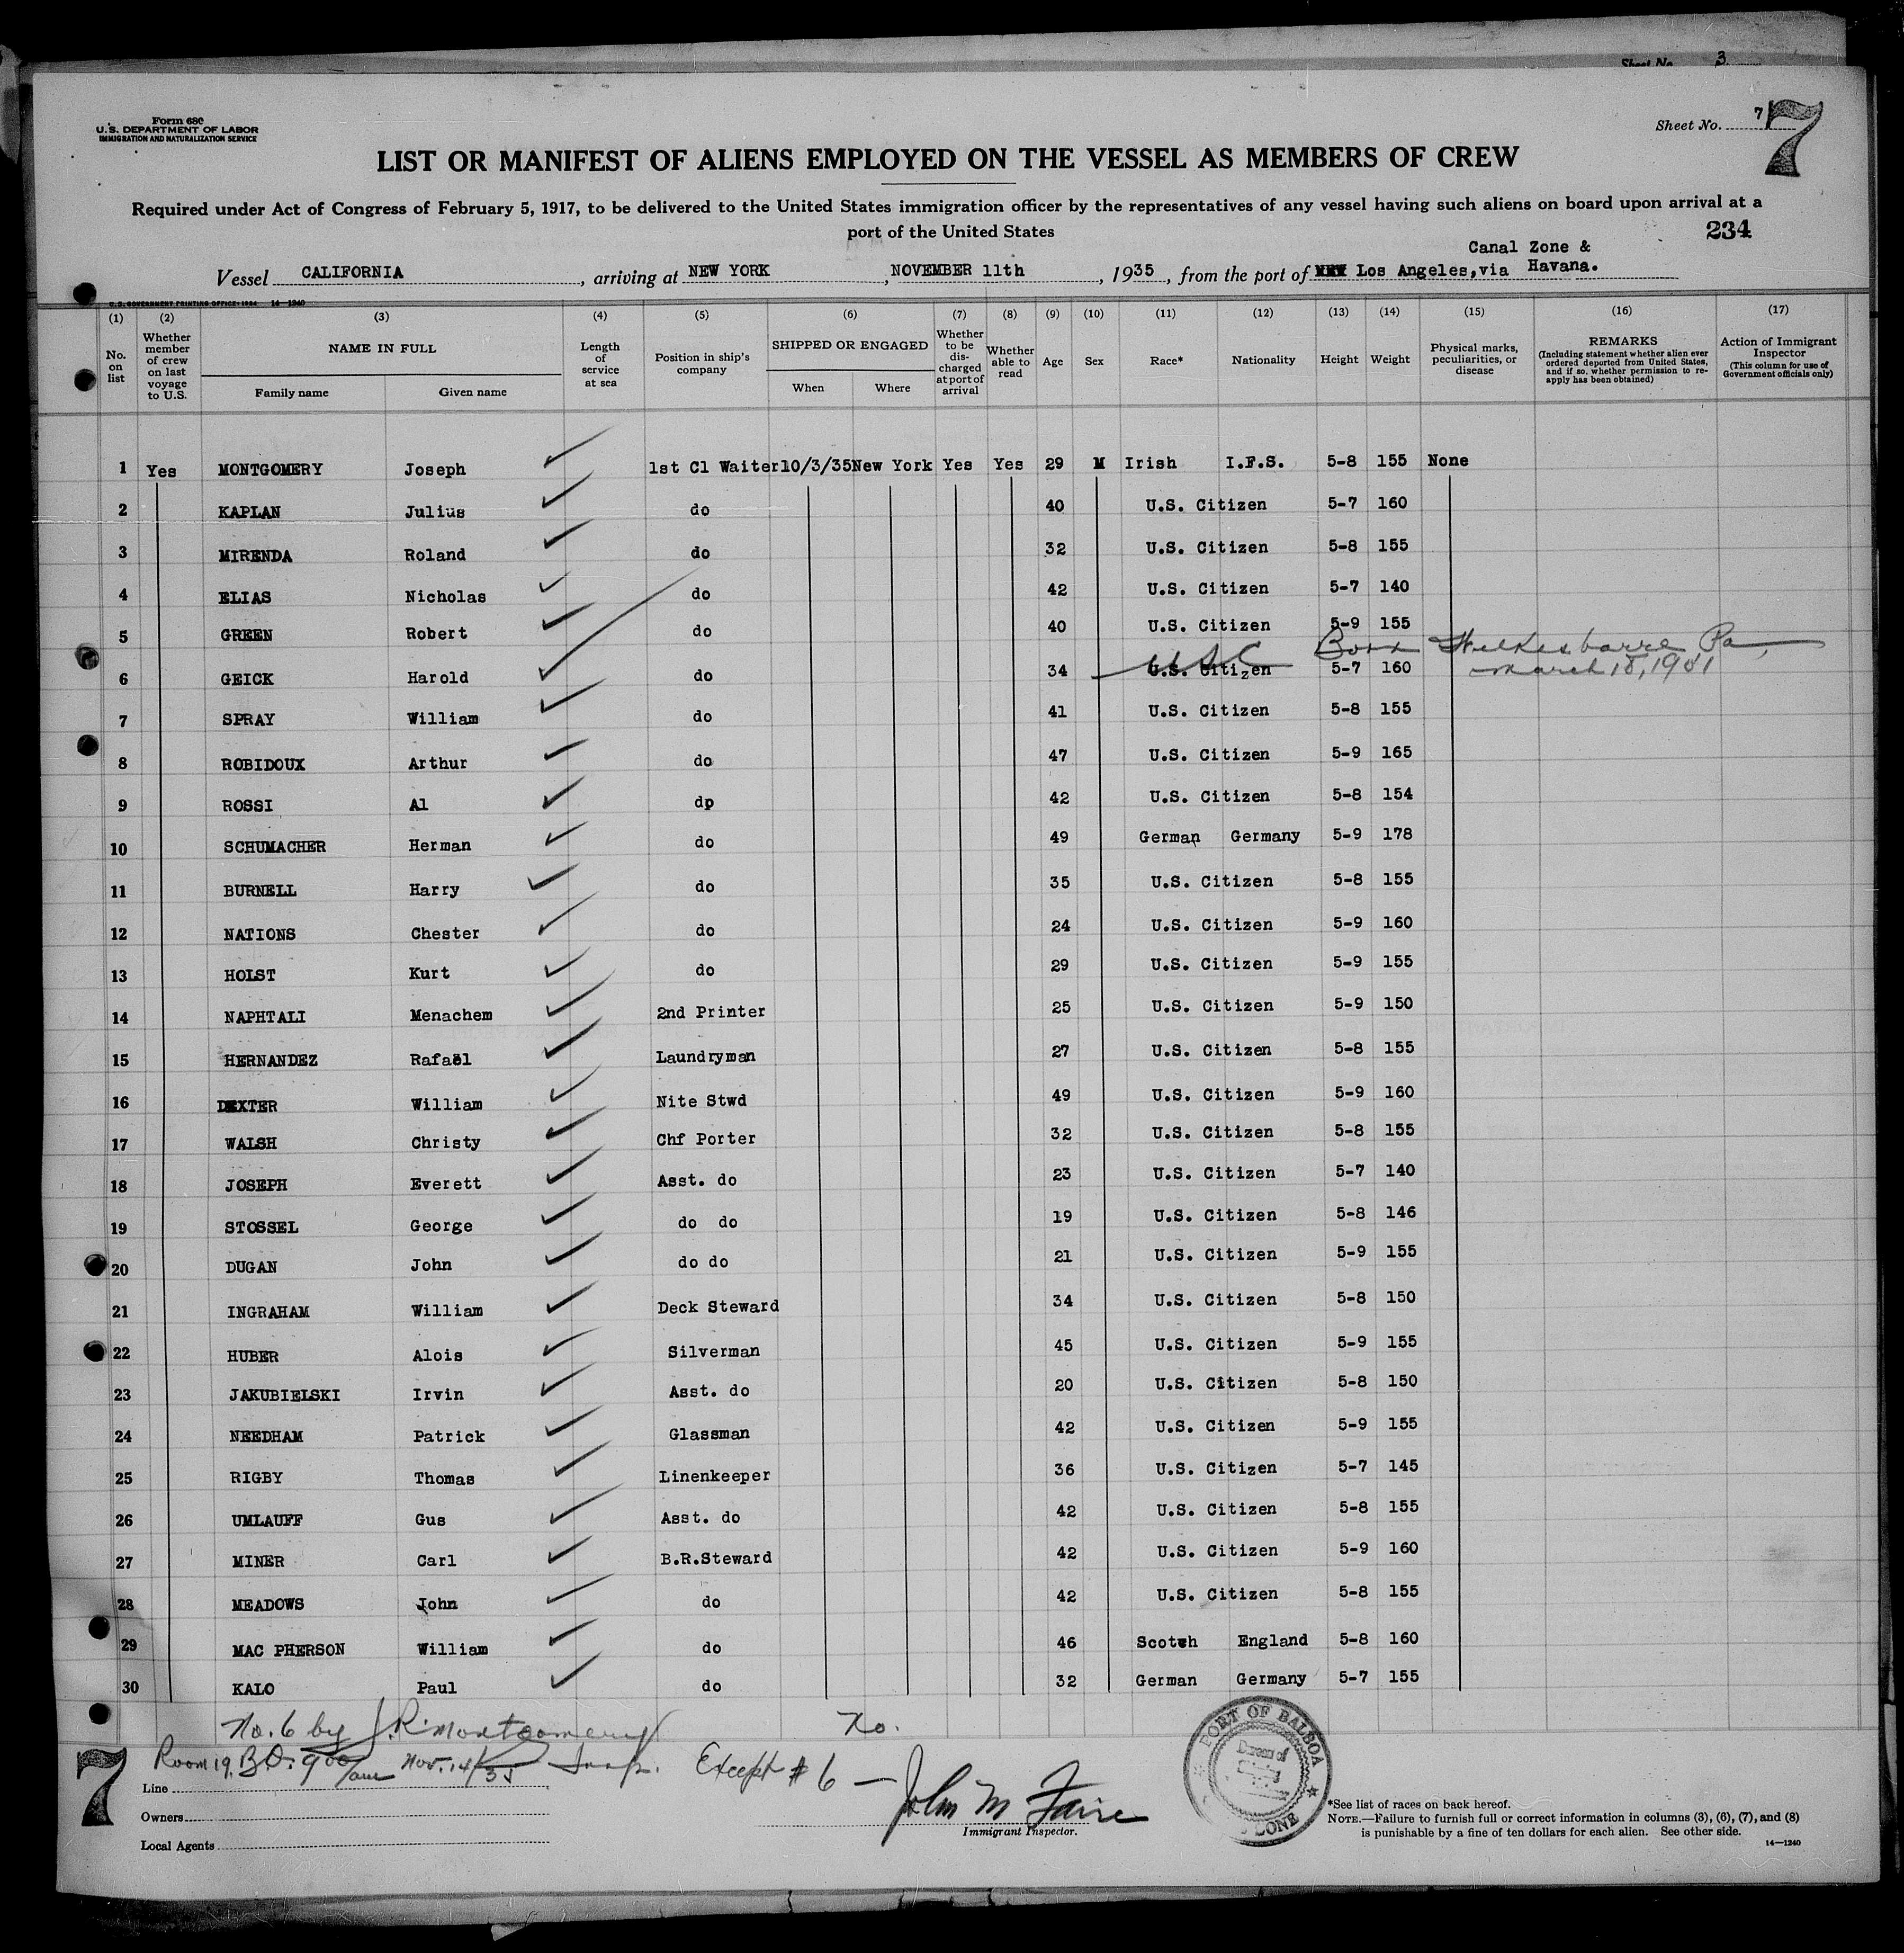 Sheet No. 3
Form 680
U.S. DEPARTMENT OF LABOR
IMMIGRATION AND NATURALIZATION SERVICE
Sheet No. 7
7
LIST OR MANIFEST OF ALIENS EMPLOYED ON THE VESSEL AS MEMBERS OF CREW
Required under Act of Congress of February 5, 1917, to be delivered to the United States immigration officer by the representatives of any vessel having such aliens on board upon arrival at a
port of the United States
234
Canal Zone &
Vessel CALIFORNIA, arriving at NEW YORK, NOVEMBER 11th, 1935, from the port of Los Angeles,via Havana.
U.S. GOVERNMENT PRINTING OFFICE: 1934 14—1240
(1) (2) (3) (4) (5) (6) (7) (8) (9) (10) (11) (12) (13) (14) (15) (16) (17)
No. on list
Whether member of crew on last voyage to U.S.
NAME IN FULL
Family name Given name
Length of service at sea
Position in ship's company
SHIPPED OR ENGAGED
When Where
Whether to be discharged at port of arrival
Whether able to read
Age
Sex
Race*
Nationality
Height
Weight
Physical marks, peculiarities, or disease
REMARKS
(Including statement whether alien ever ordered deported from United States, and if so, whether permission to re-apply has been obtained)
Action of Immigrant Inspector
(This column for use of Government officials only)
1 Yes MONTGOMERY Joseph 1st Cl Waiter 10/3/35 New York Yes Yes 29 M Irish I.F.S. 5-8 155 None
2 KAPLAN Julius do 40 U.S. Citizen 5-7 160
3 MIRENDA Roland do 32 U.S. Citizen 5-8 155
4 ELIAS Nicholas do 42 U.S. Citizen 5-7 140
5 GREEN Robert do 40 U.S. Citizen 5-9 155
USC Born Wilkesbarre Pa,
6 GEICK Harold do 34 U.S. Citizen 5-7 160 March 18, 1901
7 SPRAY William do 41 U.S. Citizen 5-8 155
8 ROBIDOUX Arthur do 47 U.S. Citizen 5-9 165
9 ROSSI Al dp 42 U.S. Citizen 5-8 154
10 SCHUMACHER Herman do 49 German Germany 5-9 178
11 BURNELL Harry do 35 U.S. Citizen 5-8 155
12 NATIONS Chester do 24 U.S. Citizen 5-9 160
13 HOLST Kurt do 29 U.S. Citizen 5-9 155
14 NAPHTALI Menachem 2nd Printer 25 U.S. Citizen 5-9 150
15 HERNANDEZ Rafael Laundryman 27 U.S. Citizen 5-8 155
16 DEXTER William Nite Stwd 49 U.S. Citizen 5-9 160
17 WALSH Christy Chf Porter 32 U.S. Citizen 5-8 155
18 JOSEPH Everett Asst. do 23 U.S. Citizen 5-7 140
19 STOSSEL George do do 19 U.S. Citizen 5-8 146
20 DUGAN John do do 21 U.S. Citizen 5-9 155
21 INGRAHAM William Deck Steward 34 U.S. Citizen 5-8 150
22 HUBER Alois Silverman 45 U.S. Citizen 5-9 155
23 JAKUBIELSKI Irvin Asst. do 20 U.S. Citizen 5-8 150
24 NEEDHAM Patrick Glassman 42 U.S. Citizen 5-9 155
25 RIGBY Thomas Linenkeeper 36 U.S. Citizen 5-7 145
26 UMLAUFF Gus Asst. do 42 U.S. Citizen 5-8 155
27 MINER Carl B.R.Steward 42 U.S. Citizen 5-9 160
28 MEADOWS John do 42 U.S. Citizen 5-8 155
29 MAC PHERSON William do 46 Scotch England 5-8 160
30 KALO Paul do 32 German Germany 5-7 155
No. 6 by J.R. Montgomery No.
Room 19, B.O. 900 am Nov. 14/35 Insp. Except #6 — John M Faire
7
Line
Owners
Local Agents
Immigrant Inspector.
PORT OF BALBOA
ZONE
*See list of races on back hereof.
NOTE.—Failure to furnish full or correct information in columns (3), (6), (7), and (8)
is punishable by a fine of ten dollars for each alien. See other side.
14—1240